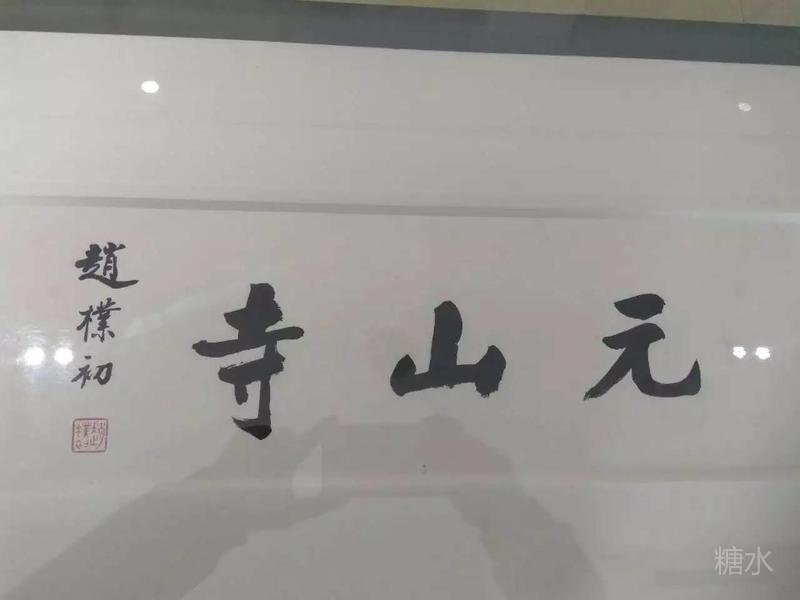 元山寺
趙樸初
糖水